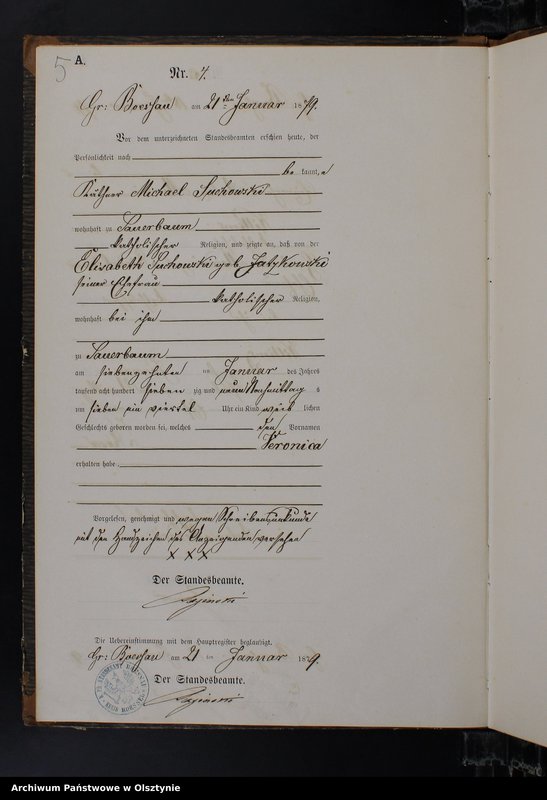 5
A.
Nr. 7.
Gr: Boessau am 21 ten Januar 1879.
Vor dem unterzeichneten Standesbeamten erschien heute, der
Persönlichkeit nach
be kannt, e
Käthner Michael Suchowski
wohnhaft zu Sauerbaum
katholischer Religion, und zeigte an, daß von der
Elisabeth Suchowski geb Jatzkowski
seiner Ehefrau
katholischer Religion,
wohnhaft bei ihm
zu Sauerbaum
am siebenzehnten ten Januar des Jahres
tausend acht hundert sieben zig und neun Nachmittag s
um sieben ein viertel Uhr ein Kind weib lichen
Geschlechts geboren worden sei, welches den Vornamen
Veronica
erhalten habe.
Vorgelesen, genehmigt und wegen Schreibensunkunde
mit den Handzeichen des Anzeigenden versehen
x x x
Der Standesbeamte.
Die Uebereinstimmung mit dem Hauptregister beglaubigt.
Gr: Boessau am 21 ten Januar 1879.
Der Standesbeamte.
Archiwum Państwowe w Olsztynie